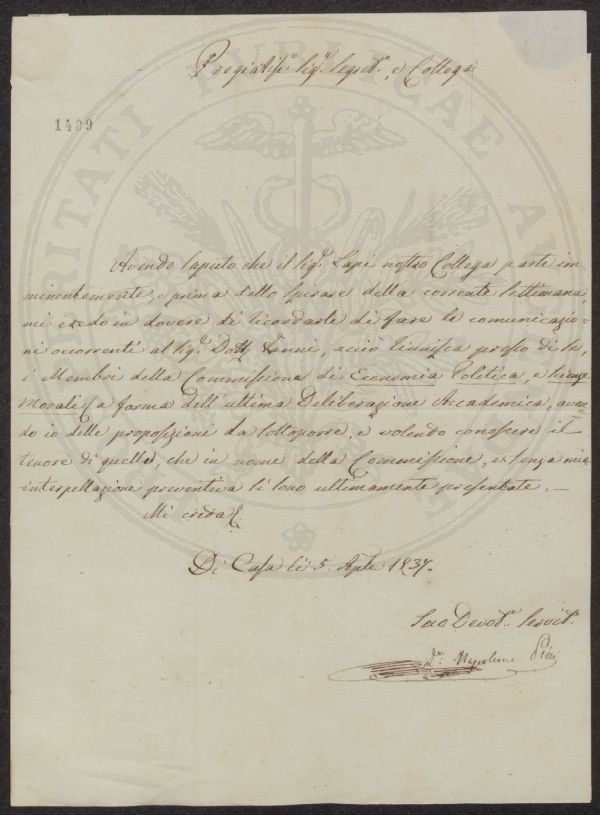 Pregiatis.º Sig.ʳ Segret.º, e Collega
1409
VERITATI PUBLICAE
Avendo saputo che il Sig.ʳ Lapi nostro Collega parte im
minentemente, e prima dello spirare della corrente Settimana,
mi credo in dovere di ricordarle di fare le comunicazio=
ni occorrenti al Sig.ʳ Dott. acciò riunisca presso di Se,
i Membri della Commissione di Economia Politica, e Scienze
Morali (a forma dell'ultima Deliberazione Accademica, aven
do io delle proposizioni da sottoporre, e volendo conoscere il
tenore di quelle, che in nome della Commissione, e senza mia
interpellazione preventiva si sono ultimamente presentate. —
Mi creda
Di Casa li 5. Aple 1837.
Suo Devot.º Servit.º
D.ʳ Napoleone Pini